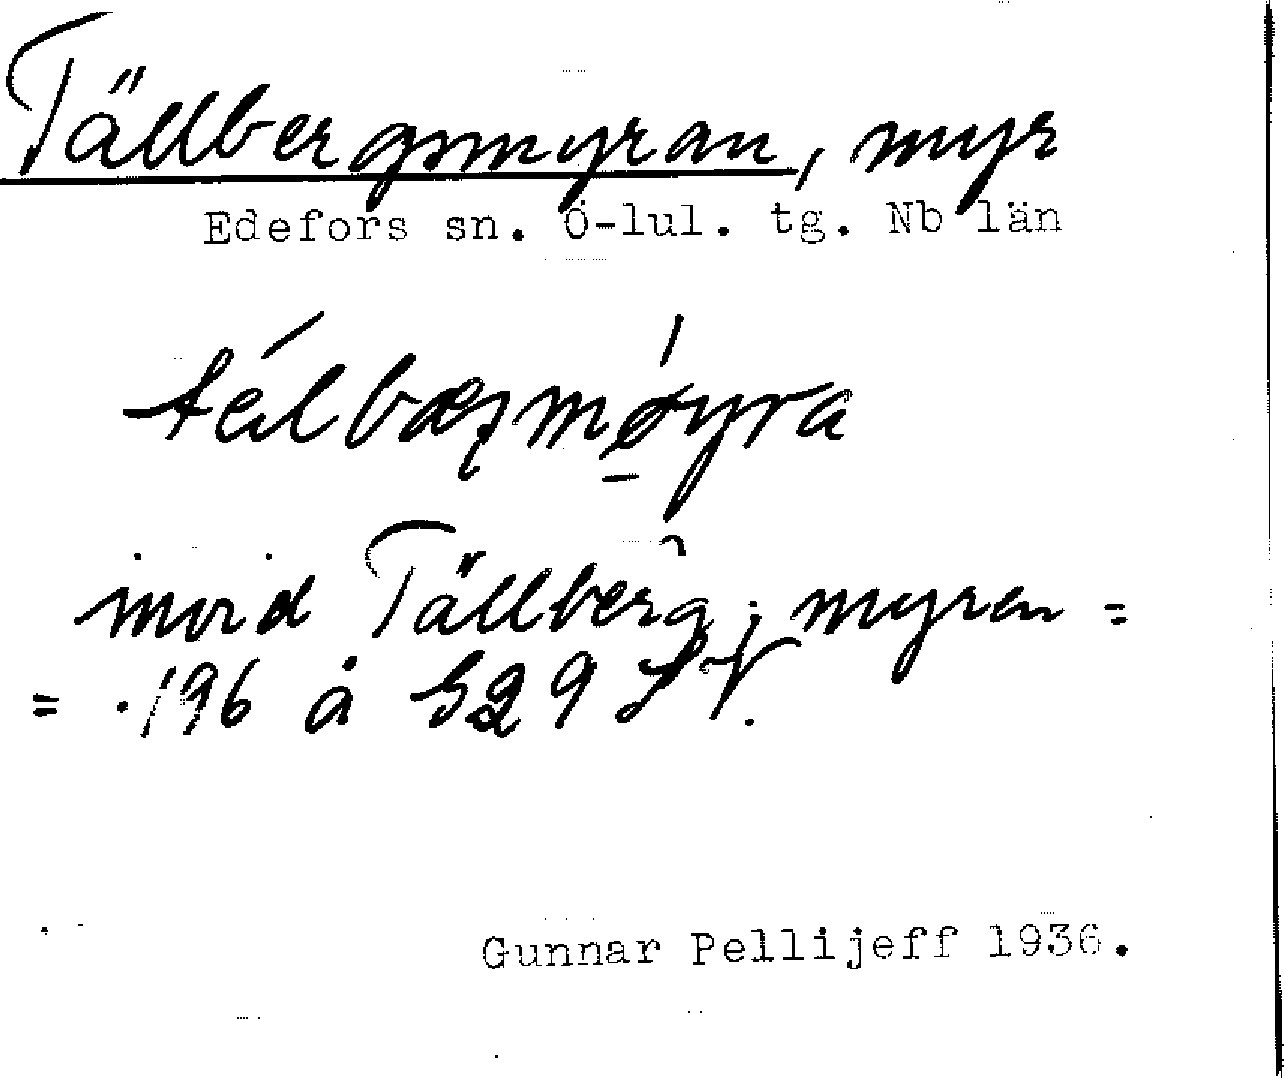 Tällbergsmyran, myr
Edefors sn. Ö-lul. tg. Nb län
invid Tällberg; myren =
= 196 å S29 SV.
Gunnar Pellijeff 1936.